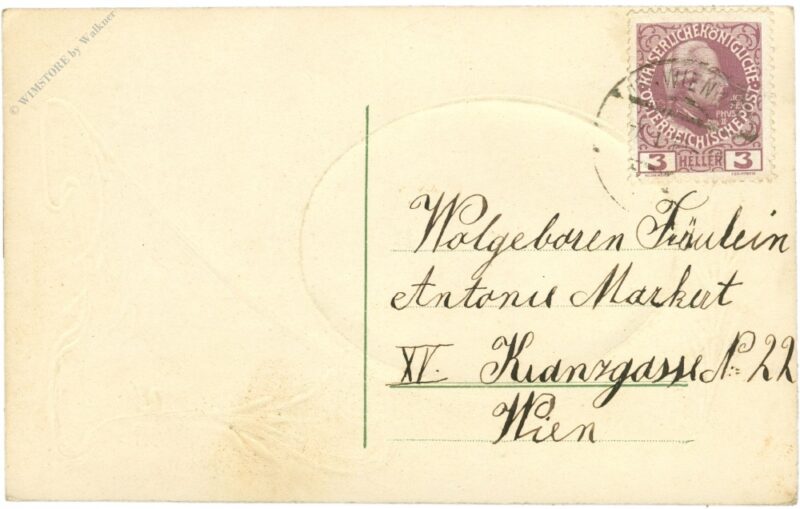 © WIMSTORE by Walkner
KAISERLICHEKÖNIGLICHE
ÖSTERREICHISCHEPOST
3 HELLER 3
WIEN
Wolgeboren Fräulein
Antonie Markert
XV. Kranzgasse No 22
Wien